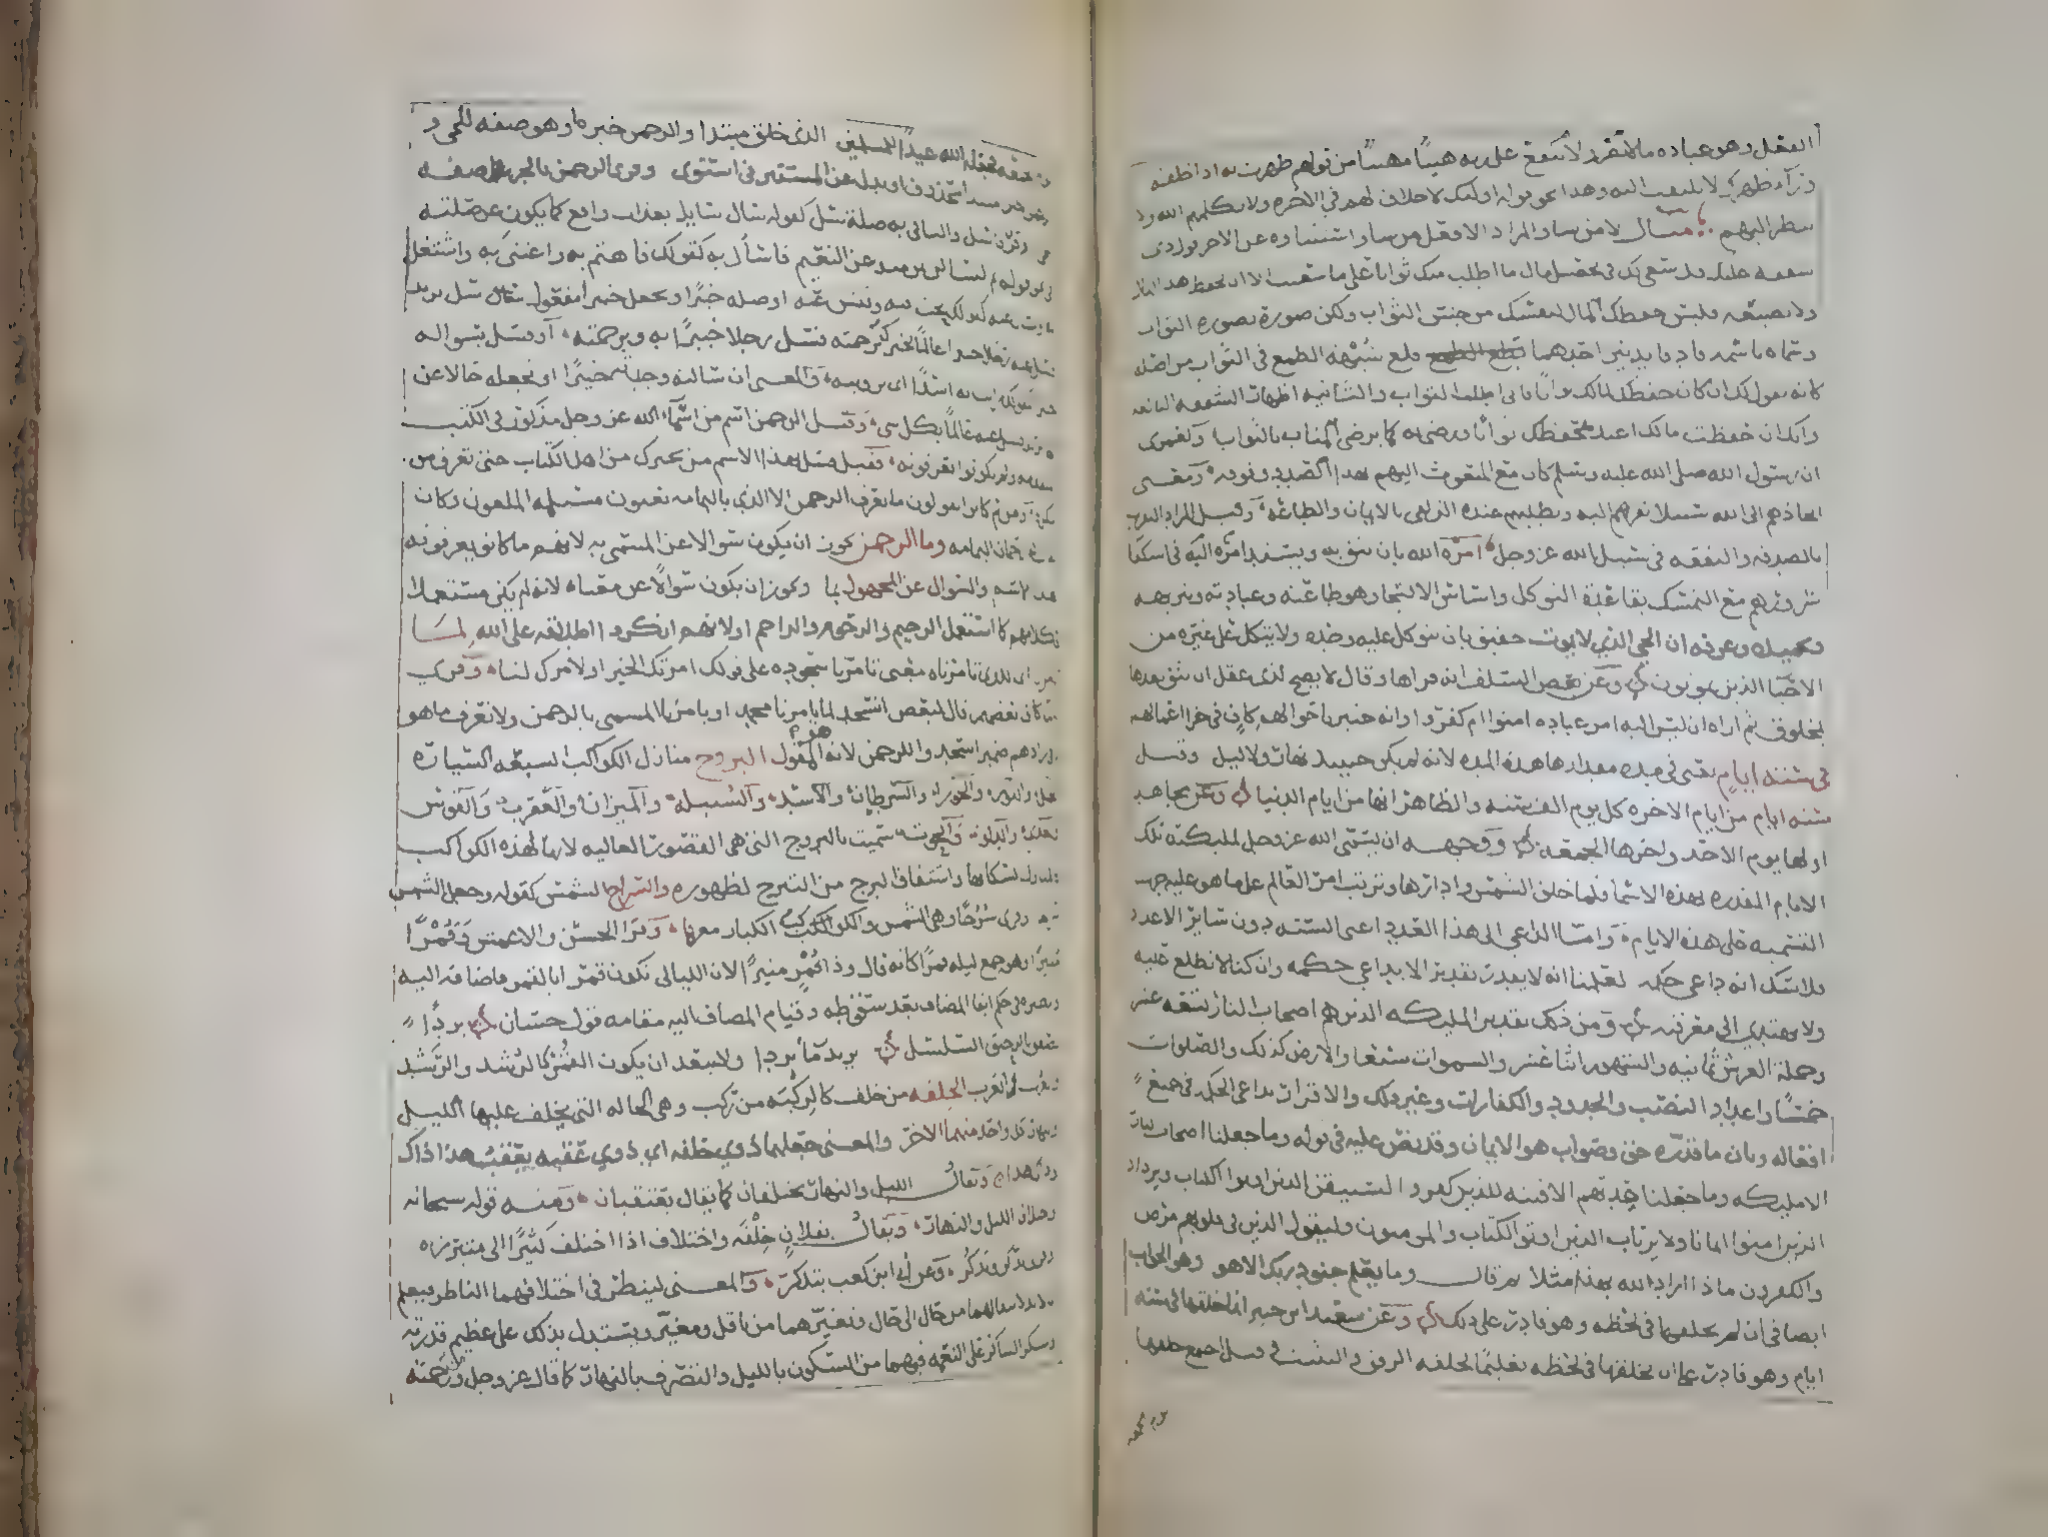 الفعل وهو عباده ما لا ينفع ولا يضر على ربه هينا مهينا من قولهم ظهرت به اذا خلفته
وراء ظهرك لا يلتفت اليه وهذا نحو قوله اولئك لا خلاق لهم في الاخره ولا يكلمهم الله ولا
ينظر اليهم مثال الا من شا والمراد الا فعل من شا واستثناوه عن الاجر قول ذى
شفقه عليك قد سعى لك في تحصيل مال ما اطلب منك ثوابا على ما سعيت الا ان تحفظ هذا المال
ولا تضيعه فليس حفظك المال لنفسك من جنس الثواب ولكن صوره بصوره الثواب
وسماه باسمه فافاد فايدتين احداهما قلع شبهه الطمع في الثواب من اصله
كانه يقول لك ان كان حفظك لمالك ثوابا فاني اطلب الثواب والثانيه اظهار الشفقه البالغه
وانك ان حفظت مالك اعتد بحفظك ثوابا ورضى به كما يرضى المثاب بالثواب ولعمرى
ان رسول الله صلى الله عليه وسلم كان مع المبعوث اليهم بهذا الصدد وفوقه ومعنى
اتخاذهم الى الله سبيلا تقربهم اليه وطلبهم عنده الزلفى بالايمان والطاعه وقيل المراد التقرب
بالصدقه والنفقه في سبيل الله عز وجل امره الله بان يثق به ويسند امره اليه في استكفا
شرورهم مع التمسك بقاعده التوكل واساس الالتجا وهو طاعته وعبادته وتنزيهه
وتحميده وعرفه ان الحى الذى لا يموت حقيق بان يتوكل عليه وحده ولا يتكل على غيره من
الاحيا الذين يموتون وعن بعض السلف انه قراها وقال لا يصح لذى عقل ان يثق بعدها
بمخلوق ثم اراه ان ليس اليه امر عباده امنوا ام كفروا وانه خبير باحوالهم كاف في جزا اعمالهم
في سته ايام يعنى في مده مقدارها هذه المده لانه لم يكن حينيذ نهار ولا ليل وقيل
سته ايام من ايام الاخره كل يوم الف سنه والظاهر انها من ايام الدنيا وعن مجاهد
اولها يوم الاحد واخرها الجمعه ووجهه ان يسمى الله عز وجل لمليكته تلك
الايام المقدره بهذه الاسما فلما خلق الشمس وادارها وترتب امر العالم على ما هو عليه جرت
التسميه على هذه الايام واما الداعى الى هذا العدد اعنى السته دون ساير الاعداد
فلا شك انه داعى حكمه لعلمنا انه لا يقدر تقديرا الا بداعى حكمه وان كنا لا نطلع عليه
ولا نهتدى الى معرفته ومن ذلك تقدير المليكه الذين هم اصحاب النار تسعه عشر
وحمله العرش ثمانيه والشهور اثنا عشر والسموات سبعا والارض كذلك والصلوات
خمسا واعداد النصب والحدود والكفارات وغير ذلك والاقرار بداعى الحكمه في جميع
افعاله وبان ما قدره حق وصواب هو الايمان وقد نص عليه في قوله وما جعلنا اصحاب النار
الا مليكه وما جعلنا عدتهم الا فتنه للذين كفروا ليستيقن الذين اوتوا الكتاب ويزداد
الذين امنوا ايمانا ولا يرتاب الذين اوتوا الكتاب والمومنون وليقول الذين في قلوبهم مرض
والكفرون ماذا اراد الله بهذا مثلا ثم قال وما يعلم جنود ربك الا هو وهو الجواب
ايضا في ان لم يخلقها في لحظه وهو قادر على ذلك وعن سعيد ابن جبير انما خلقها في سته
ايام وهو قادر على ان يخلقها في لحظه تعليما لخلقه الرفق والتثبت وقيل اجتمع خلقها
يوم الجمعه
فجعله الله عيدا للمسلمين الذى خلق مبتدا والرحمن خبره او هو صفه للحى و
الرحمن خبر مبتدا محذوف او بدل عن المستتر في استوى وقرى الرحمن بالجر صفه
وقرى فسل والبا في به صله سل كقوله سال سايل بعذاب واقع كما يكون عن صلته
في نحو قوله ثم لتسالن يوميذ عن النعيم فاسأل به كقولك فاهتم به واعتنى به واشتغل
وسال عنه كقولك بحث عنه وفتش عنه او صله خبيرا وتجعل خبيرا مفعول سل يريد
فسل عنه رجلا عالما يخبرك برحمته فسل رجلا خبيرا به وبرحمته او فسل بسواله
خبيرا كقولك رايت به اسدا اى برويته والمعنى ان سالته وجدته خبيرا او تجعله حالا عن
الها تريد فسل عنه عالما بكل شى وقيل الرحمن اسم من اسماء الله عز وجل مذكور في الكتب
المتقدمه ولم يكونوا يعرفونه فقيل فسل بهذا الاسم من يخبرك من اهل الكتاب حتى تعرف من
ينكره ومن ثم كانوا يقولون ما نعرف الرحمن الا الذى باليمامه يعنون مسيلمه الملعون وكان
يقال له رحمان اليمامه وما الرحمن يجوز ان يكون سوالا عن المسمى به لانهم ما كانوا يعرفونه
بهذا الاسم والسوال عن المجهول بما ويجوز ان يكون سوالا عن معناه لانه لم يكن مستعملا
في كلامهم كما استعمل الرحيم والرحوم والراحم او لانهم انكروا اطلاقه على الله لما
تامرنا اى للذى تامرناه بمعنى تامرنا سجوده على قولك امرتك الخير او لامرك لنا وقرى
باليا كان بعضهم قال لبعض انسجد لما يامرنا محمد او يامرنا المسمى بالرحمن ولا نعرف ما هو
وزادهم ضمير اسجدوا للرحمن لانه هو المقول البروج منازل الكواكب السبعه السياره
الحمل والثور والجوزاء والسرطان والاسد والسنبله والميزان والعقرب والقوس
والجدى والدلو والحوت سميت بالبروج التى هى القصور العاليه لانها لهذه الكواكب
كالمنازل لسكانها واشتقاق البرج من التبرج لظهوره والسراج الشمس كقوله وجعل الشمس
سراجا وقرى سرجا وهى الشمس والكواكب الكبار معها وقرا الحسن والاعمش وقمرا
منيرا وهو جمع ليله قمرا كانه قال وذا قمر منيرا لان الليالى تكون قمرا بالقمر فاضافه اليه
ونظيره في حكم ابقا المضاف بعد سقوطه وقيام المضاف اليه مقامه قول حسان بردى
يصفق بالرحيق السلسل يريد ما بردا ولا يبعد ان يكون القمر كالرشد والرشد
والعرب والعرب الخلفه من خلف كالركبه من ركب وهى الحاله التى يخلف عليها الليل
والنهار كل واحد منهما الاخر والمعنى جعلهما ذوى خلفه اى ذوى عقبه يعقب هذا ذاك
وذاك هذا ويقال الليل والنهار يختلفان كما يقال يعتقبان ومنه قوله سبحانه
واختلاف الليل والنهار ويقال بفلان خلفه واختلاف اذا اختلف كثيرا الى متبرزه
وقرى يذكر ويذكر وعن ابى ابن كعب يتذكر والمعنى لينظر في اختلافهما الناظر فيعلم
ان لا بد لانتقالهما من حال الى حال وتغيرهما من ناقل ومغير ويستدل بذلك على عظيم قدرته
ويشكر الشاكر على النعمه فيهما من السكون بالليل والتصرف بالنهار كما قال عز وجل ومن رحمته